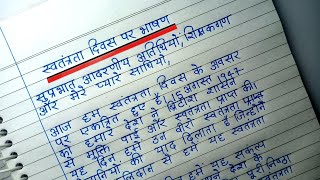 स्वतंत्रता दिवस पर भाषण
सुप्रभात आदरणीय अतिथियों, शिक्षकगण
और मेरे प्यारे साथियों,
आज हम स्वतंत्रता दिवस के अवसर
पर एकत्रित हुए हैं। 15 अगस्त 1947
को हमारे देश ने ब्रिटिश शासन
से मुक्ति पाई और स्वतंत्रता प्राप्त की।
यह दिन हमें उन वीरों
की याद दिलाता है जिन्होंने
बलिदान से हमें यह स्वतंत्रता
हम यह संकल्प